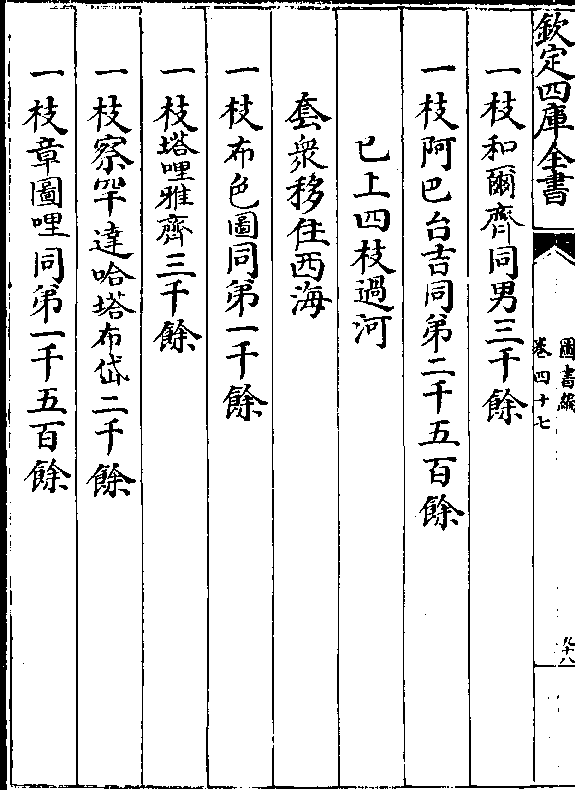 欽定四庫全書
圖書編
卷四十七
九十八
一枝和爾齊同男三千餘
一枝阿巴台吉同第二千五百餘
已上四枝過河
套衆移住西海
一枝布色圖同第一千餘
一枝塔哩雅齊三千餘
一枝察罕達哈塔布岱二千餘
一枝章圖哩同第一千五百餘